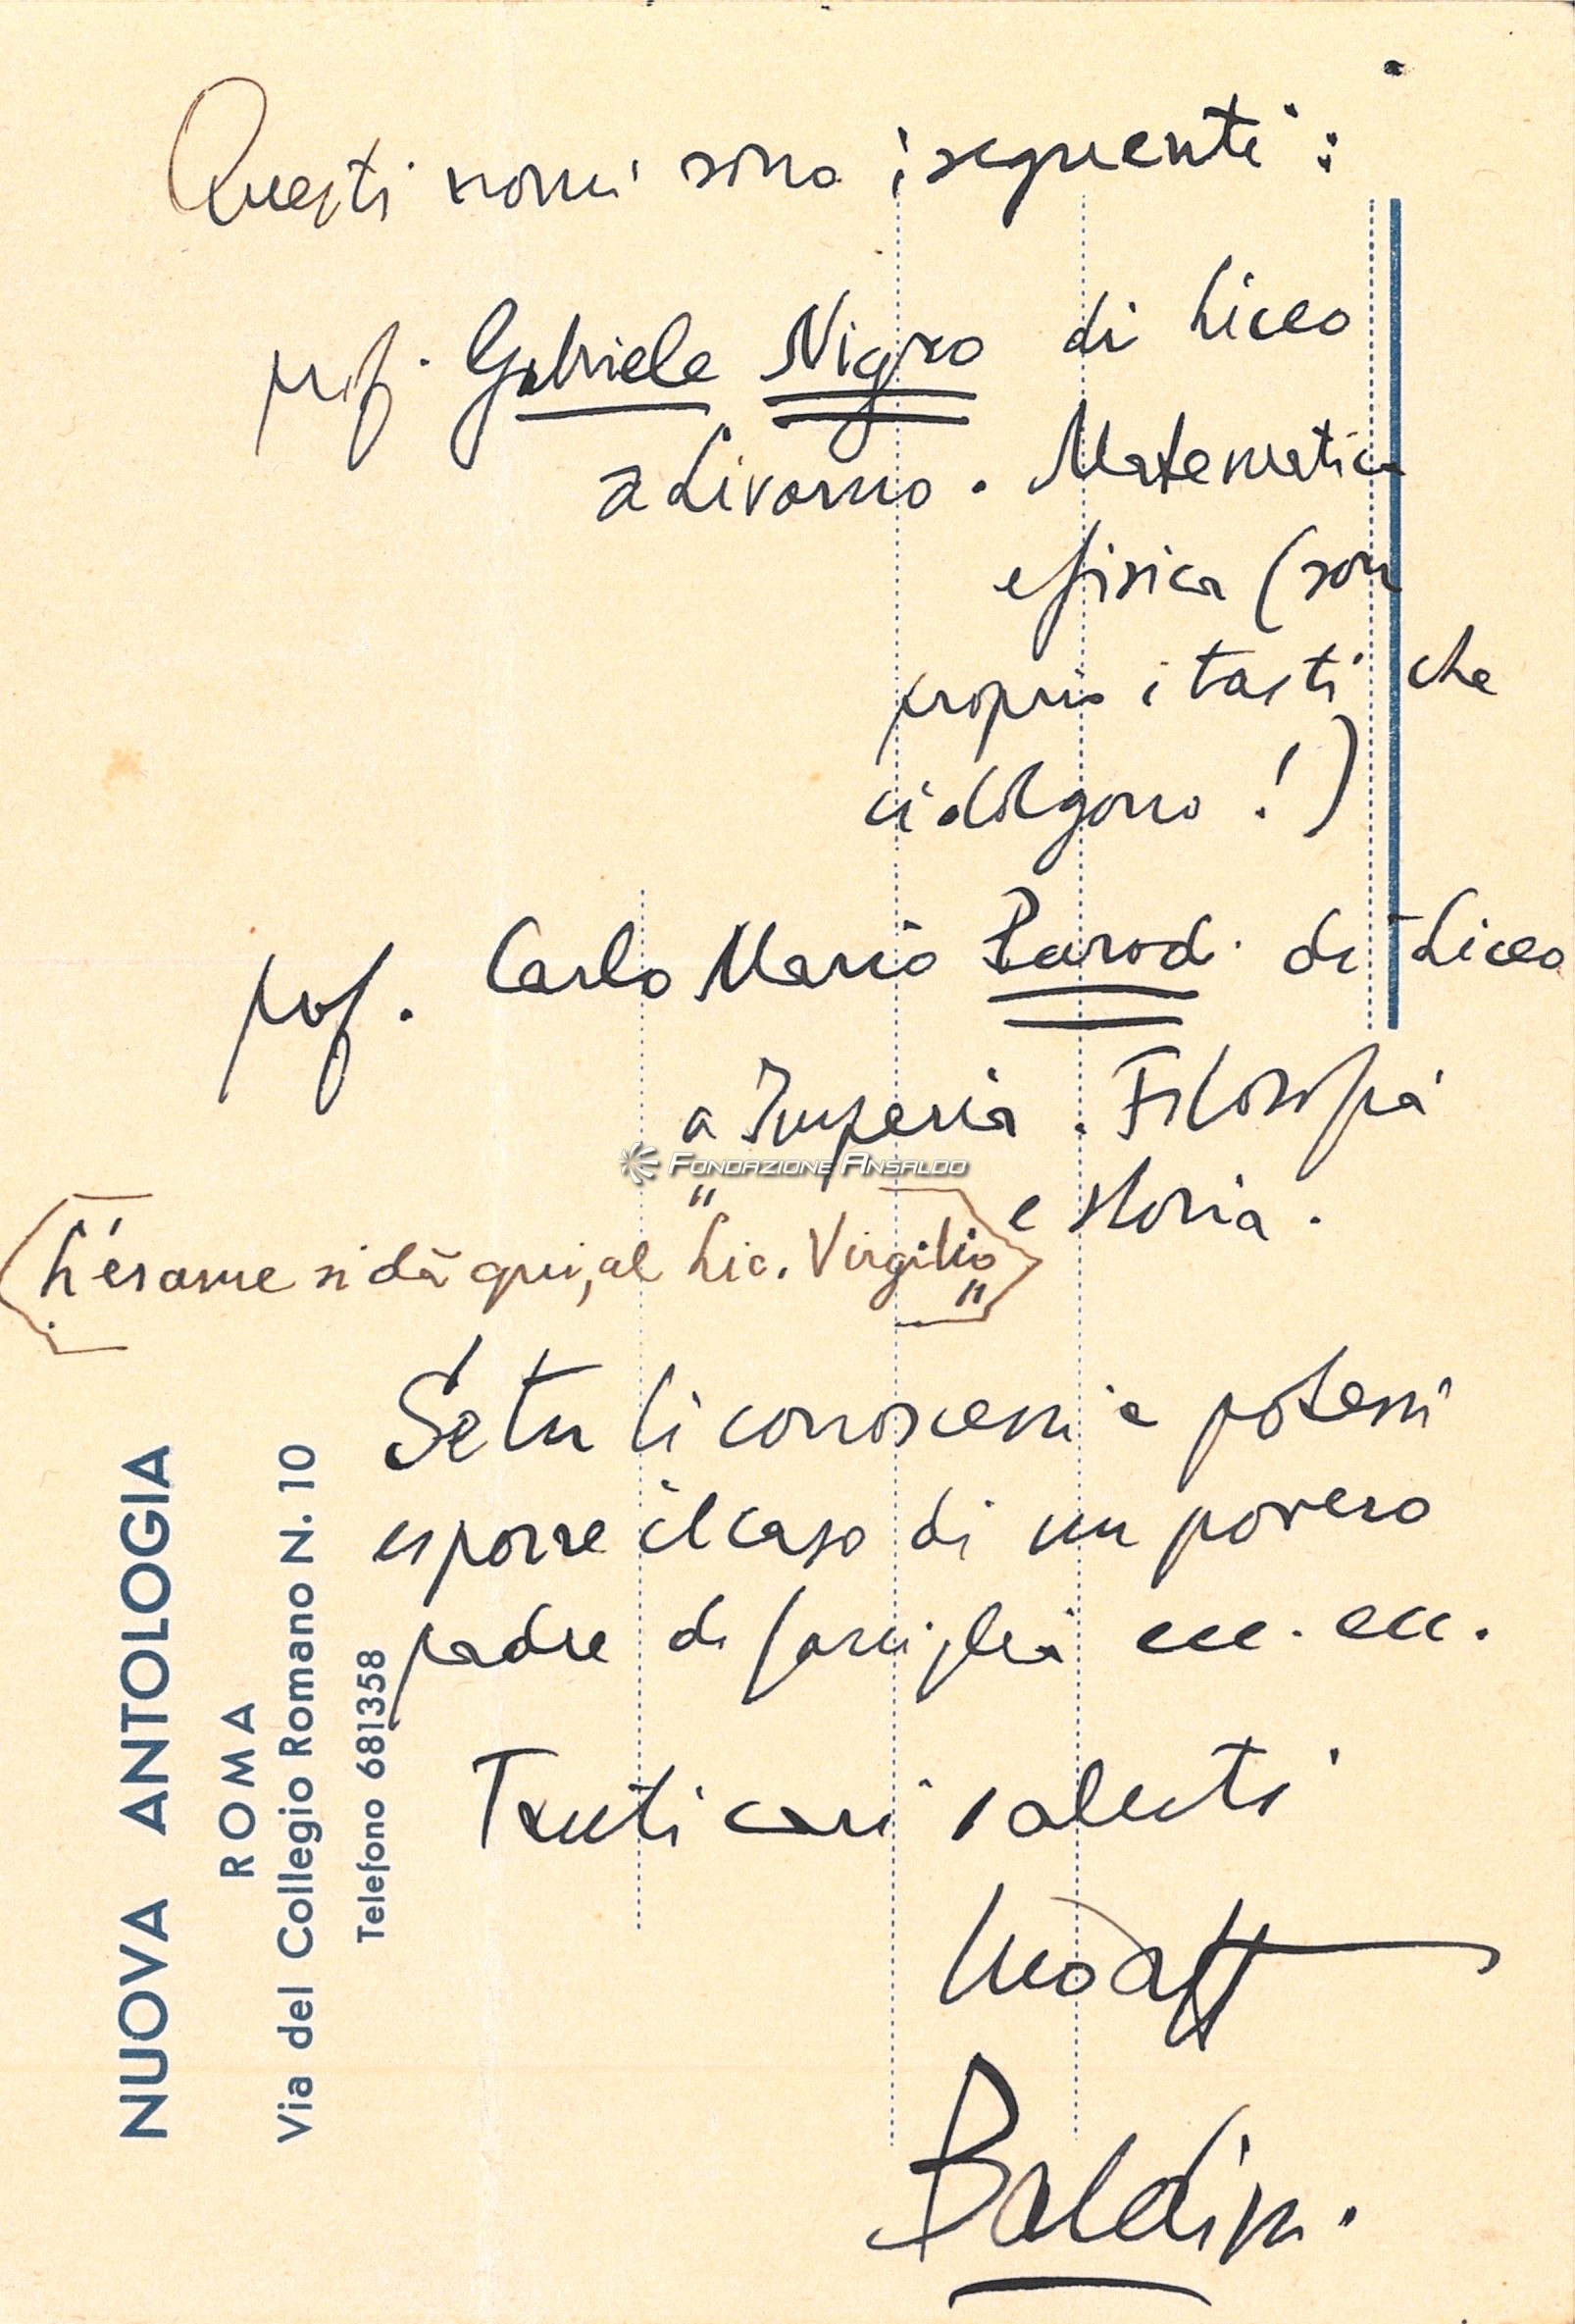 Questi nomi sono i seguenti:
prof. Gabriele Nigro di Liceo
a Livorno. Matematica
e fisica (son
proprio i tasti che
ci dolgono!)
prof. Carlo Mario Parodi di Liceo
a Imperia. Filosofia
e storia.
FONDAZIONE ANSALDO
L'esame si dà qui, al "Lic. Virgilio"
Se tu li conoscessi e potessi
esporre il caso di un povero
padre di famiglia ecc. ecc.
Tanti cari saluti
tuo aff
Baldini.
NUOVA ANTOLOGIA
ROMA
Via del Collegio Romano N. 10
Telefono 681358